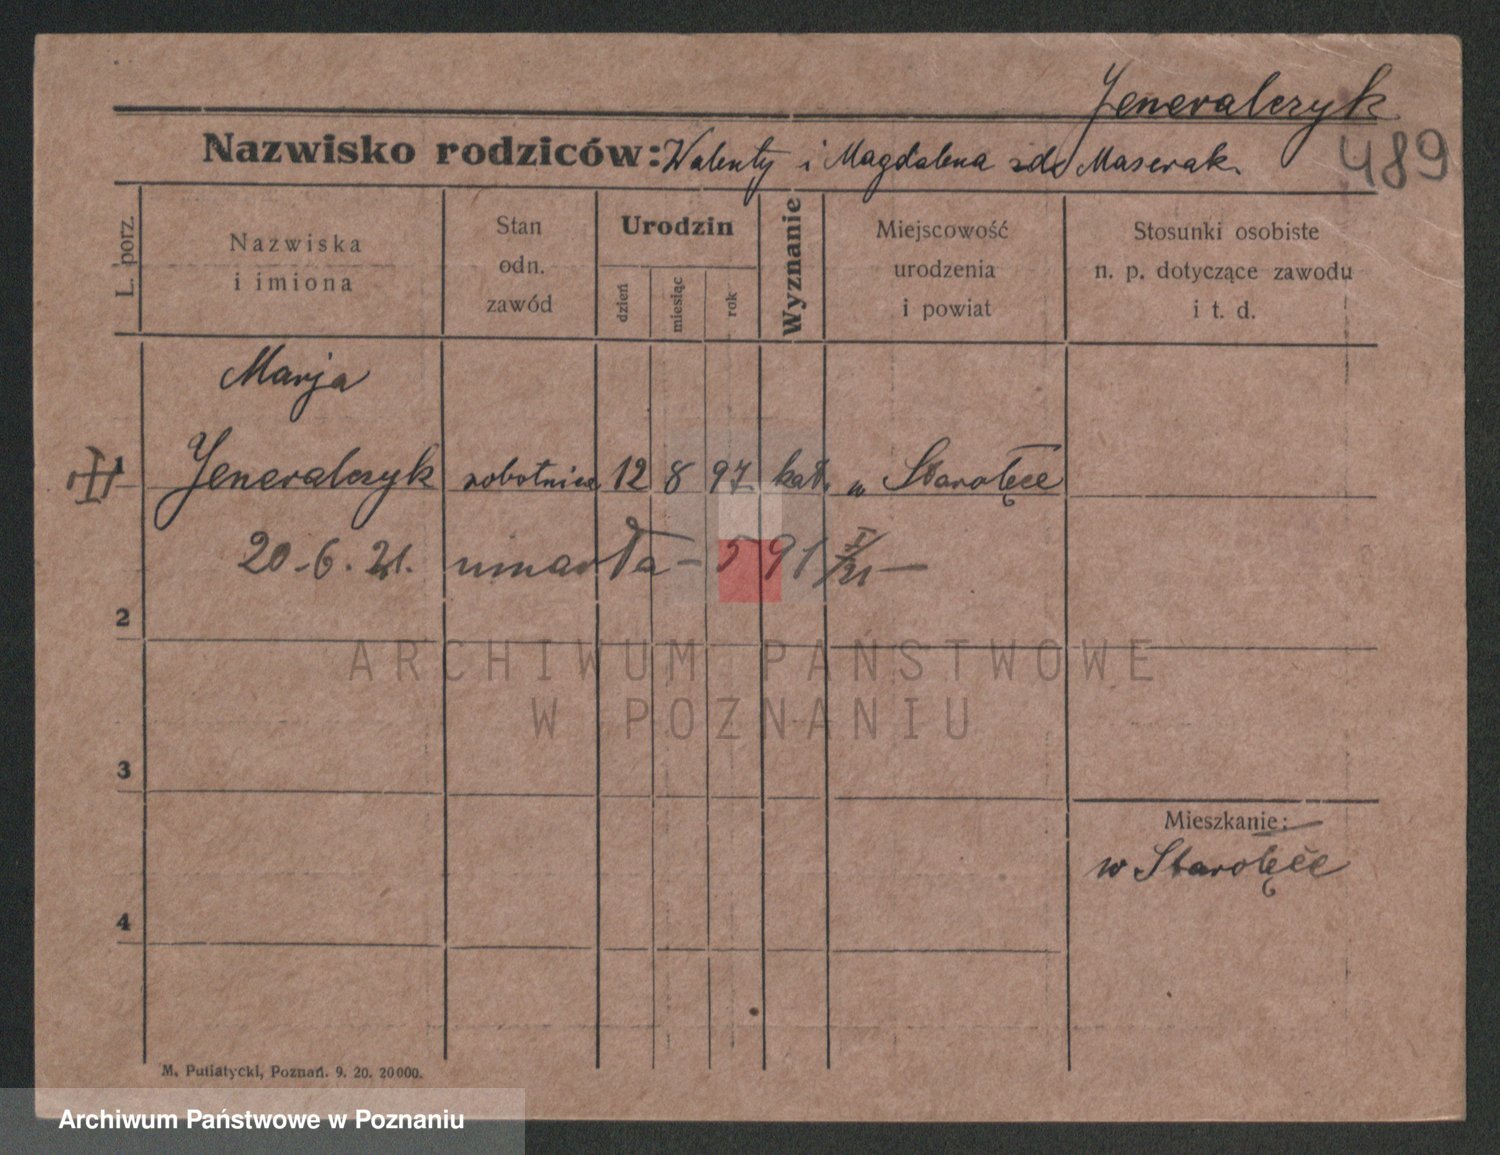 Jeneralczyk
489
Nazwisko rodziców: Walenty i Magdalena zd. Maserak.
L. porz.
Nazwiska
i imiona
Stan
odn.
zawód
Urodzin
dzień
miesiąc
rok
Wyznanie
Miejscowość
urodzenia
i powiat
Stosunki osobiste
n. p. dotyczące zawodu
i t. d.
Marja
1 Jeneralczyk robotnica 12 8 97 kat. w Starołęce
20.6.21. umarła – 591 V/21 –
2
ARCHIWUM PAŃSTWOWE
W POZNANIU
3
Mieszkanie:
w Starołęce
4
M. Putiatycki, Poznań. 9. 20. 20000.
Archiwum Państwowe w Poznaniu